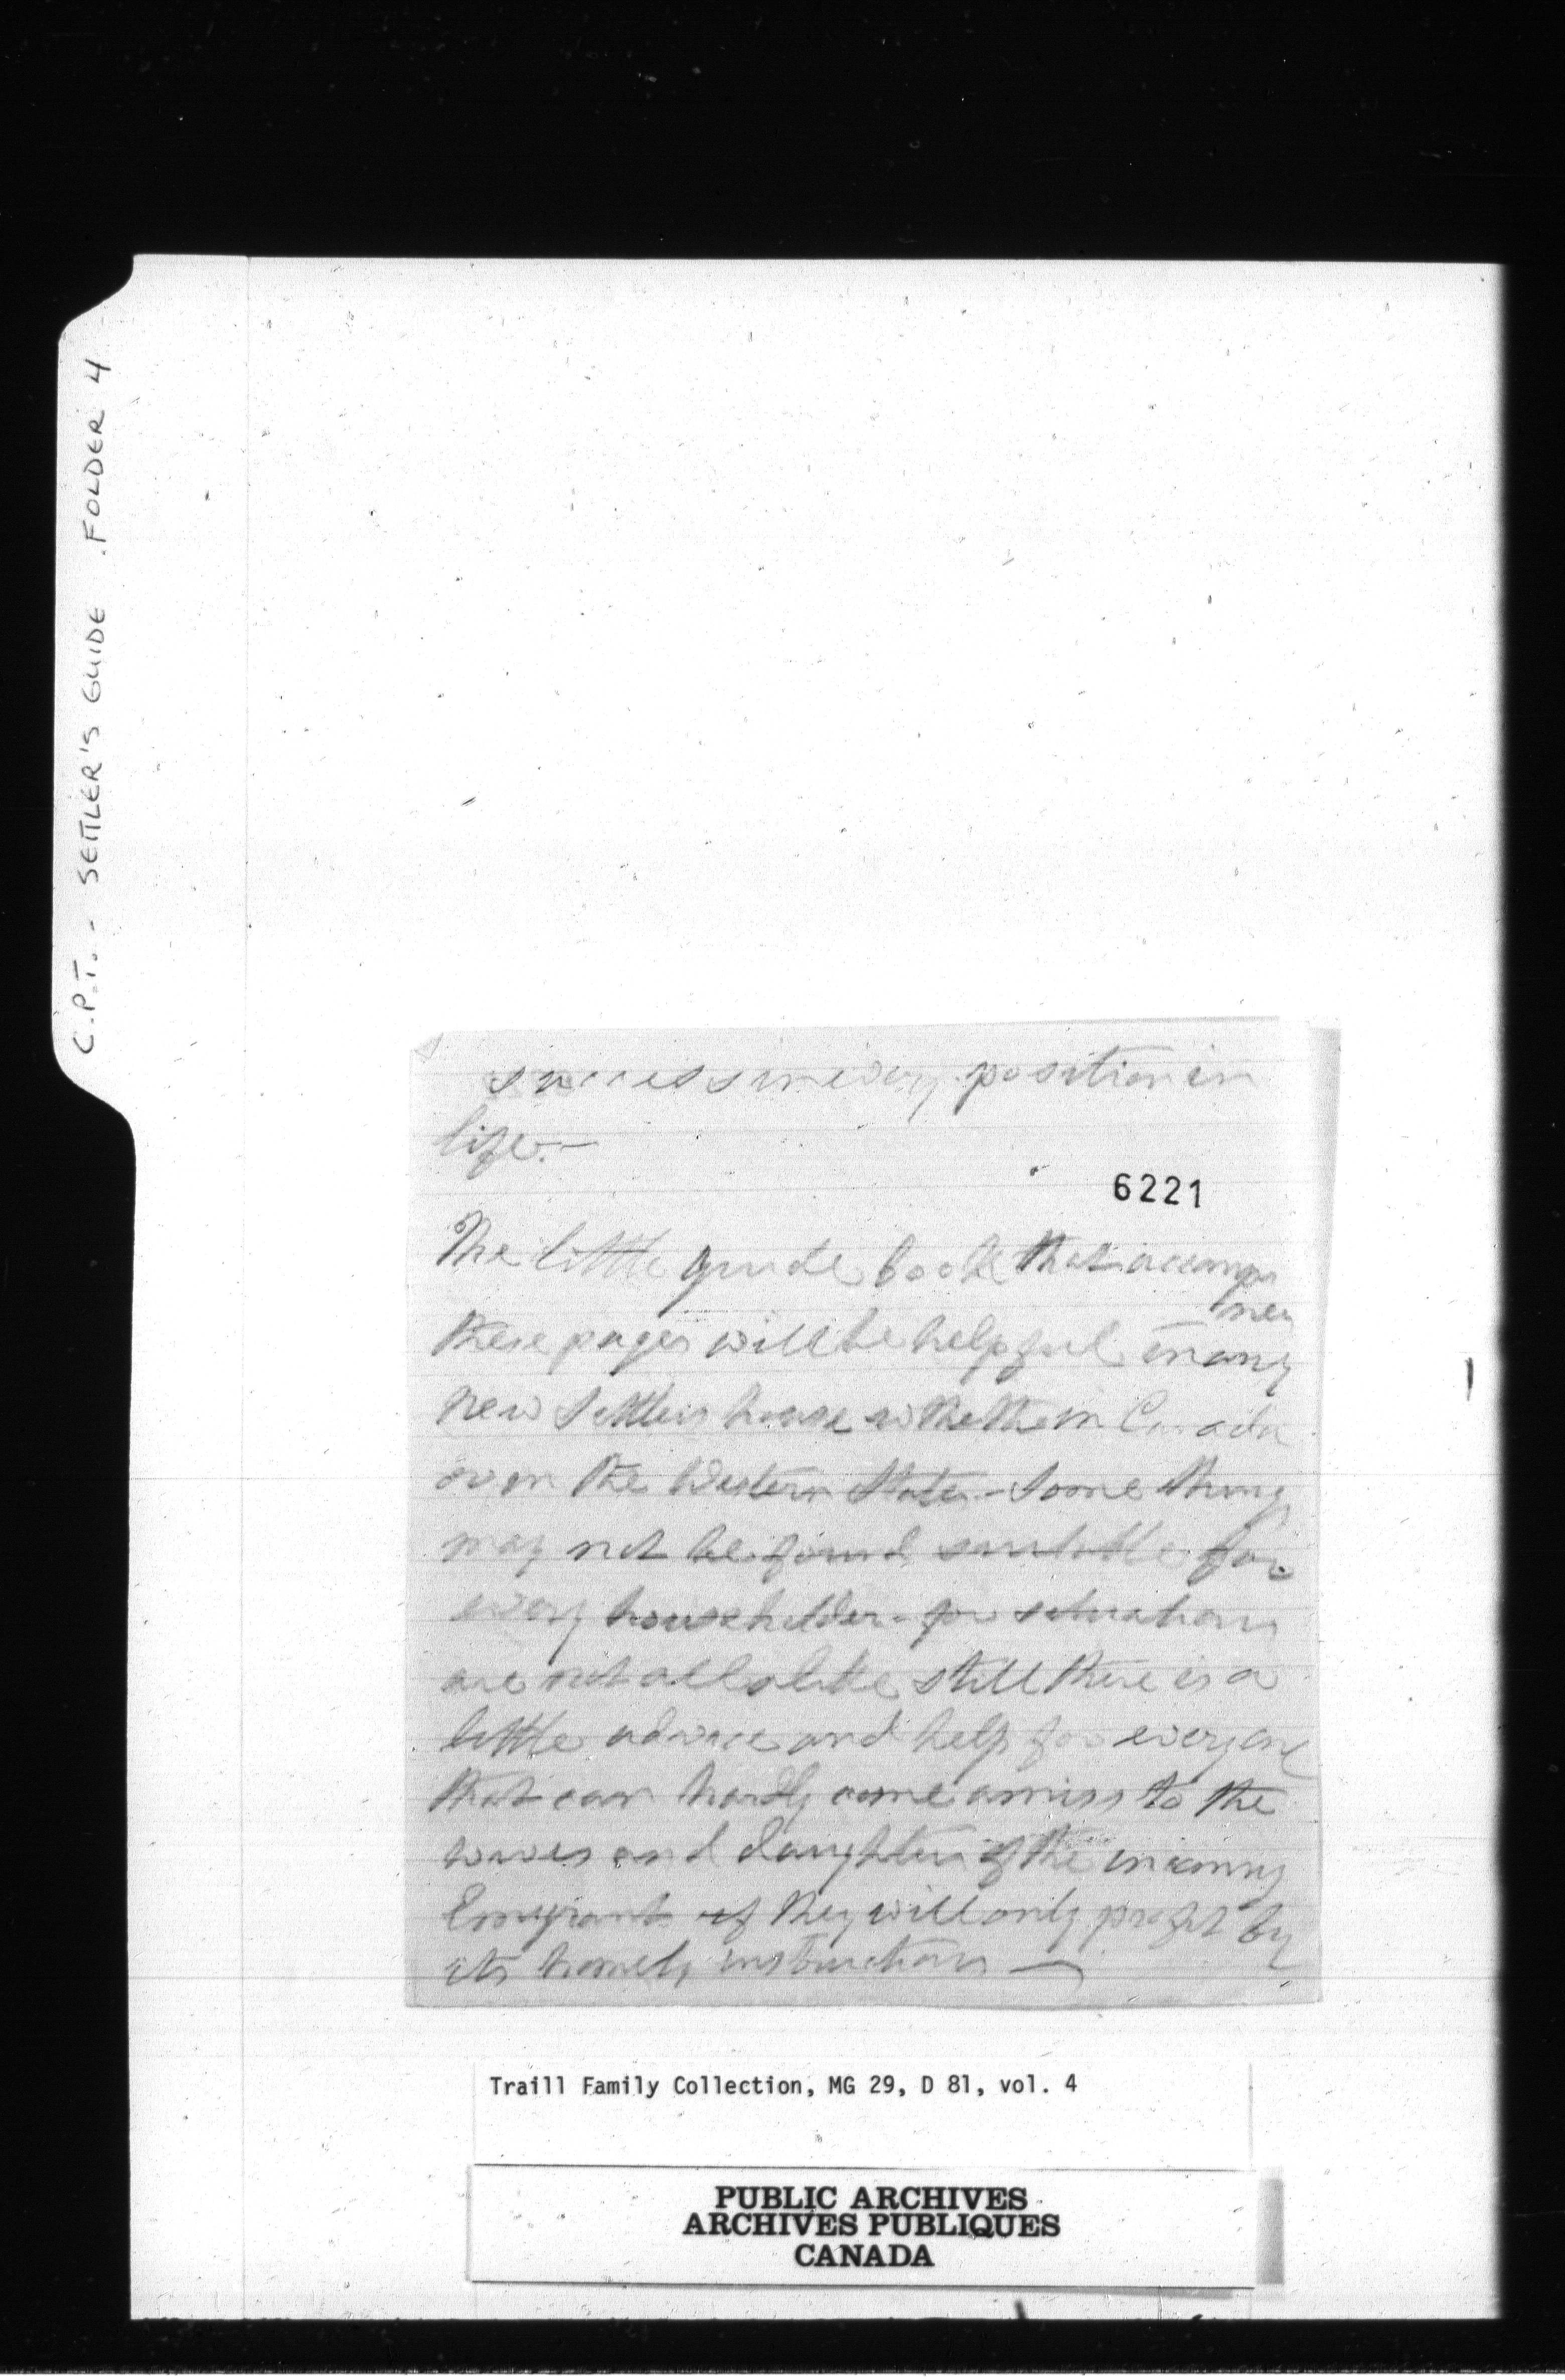 C.P.T. - SETTLER'S GUIDE . FOLDER 4
success in every position in
life. —
6221
The little guide book that accompa
nies
these pages will be helpful in any
new settlers house whether in Canada
or in the Western States - Some things
may not be found suitable for
every householder - for situations
are not all alike still there is a
little advice and help for everyone
that can hardly come amiss to the
wives and daughters of the incoming
Emigrants if they will only profit by
its homely instructions —
Traill Family Collection, MG 29, D 81, vol. 4
PUBLIC ARCHIVES
ARCHIVES PUBLIQUES
CANADA